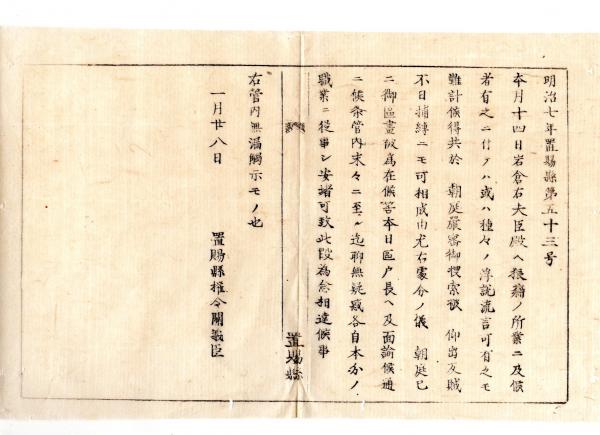 明治七年置賜縣第五十三号
本月十四日岩倉右大臣殿ヘ狼藉ノ所業ニ及候
者有之ニ付テハ或ハ種々ノ浮説流言可有之モ
難計候得共於 朝庭嚴審御捜索被 仰出反賊
不日捕縛ニモ可相成由尤右處分ノ儀 朝庭已
ニ御區畫被為在候筈本日區戸長ヘ及面諭候通
ニ候条管内末々ニ至ル迄聊無疑惑各自本分ノ
職業ニ從事シ安堵可致此段為念相達候事
置賜縣
右管内無漏觸示モノ也
一月廿八日
置賜縣権令關義臣